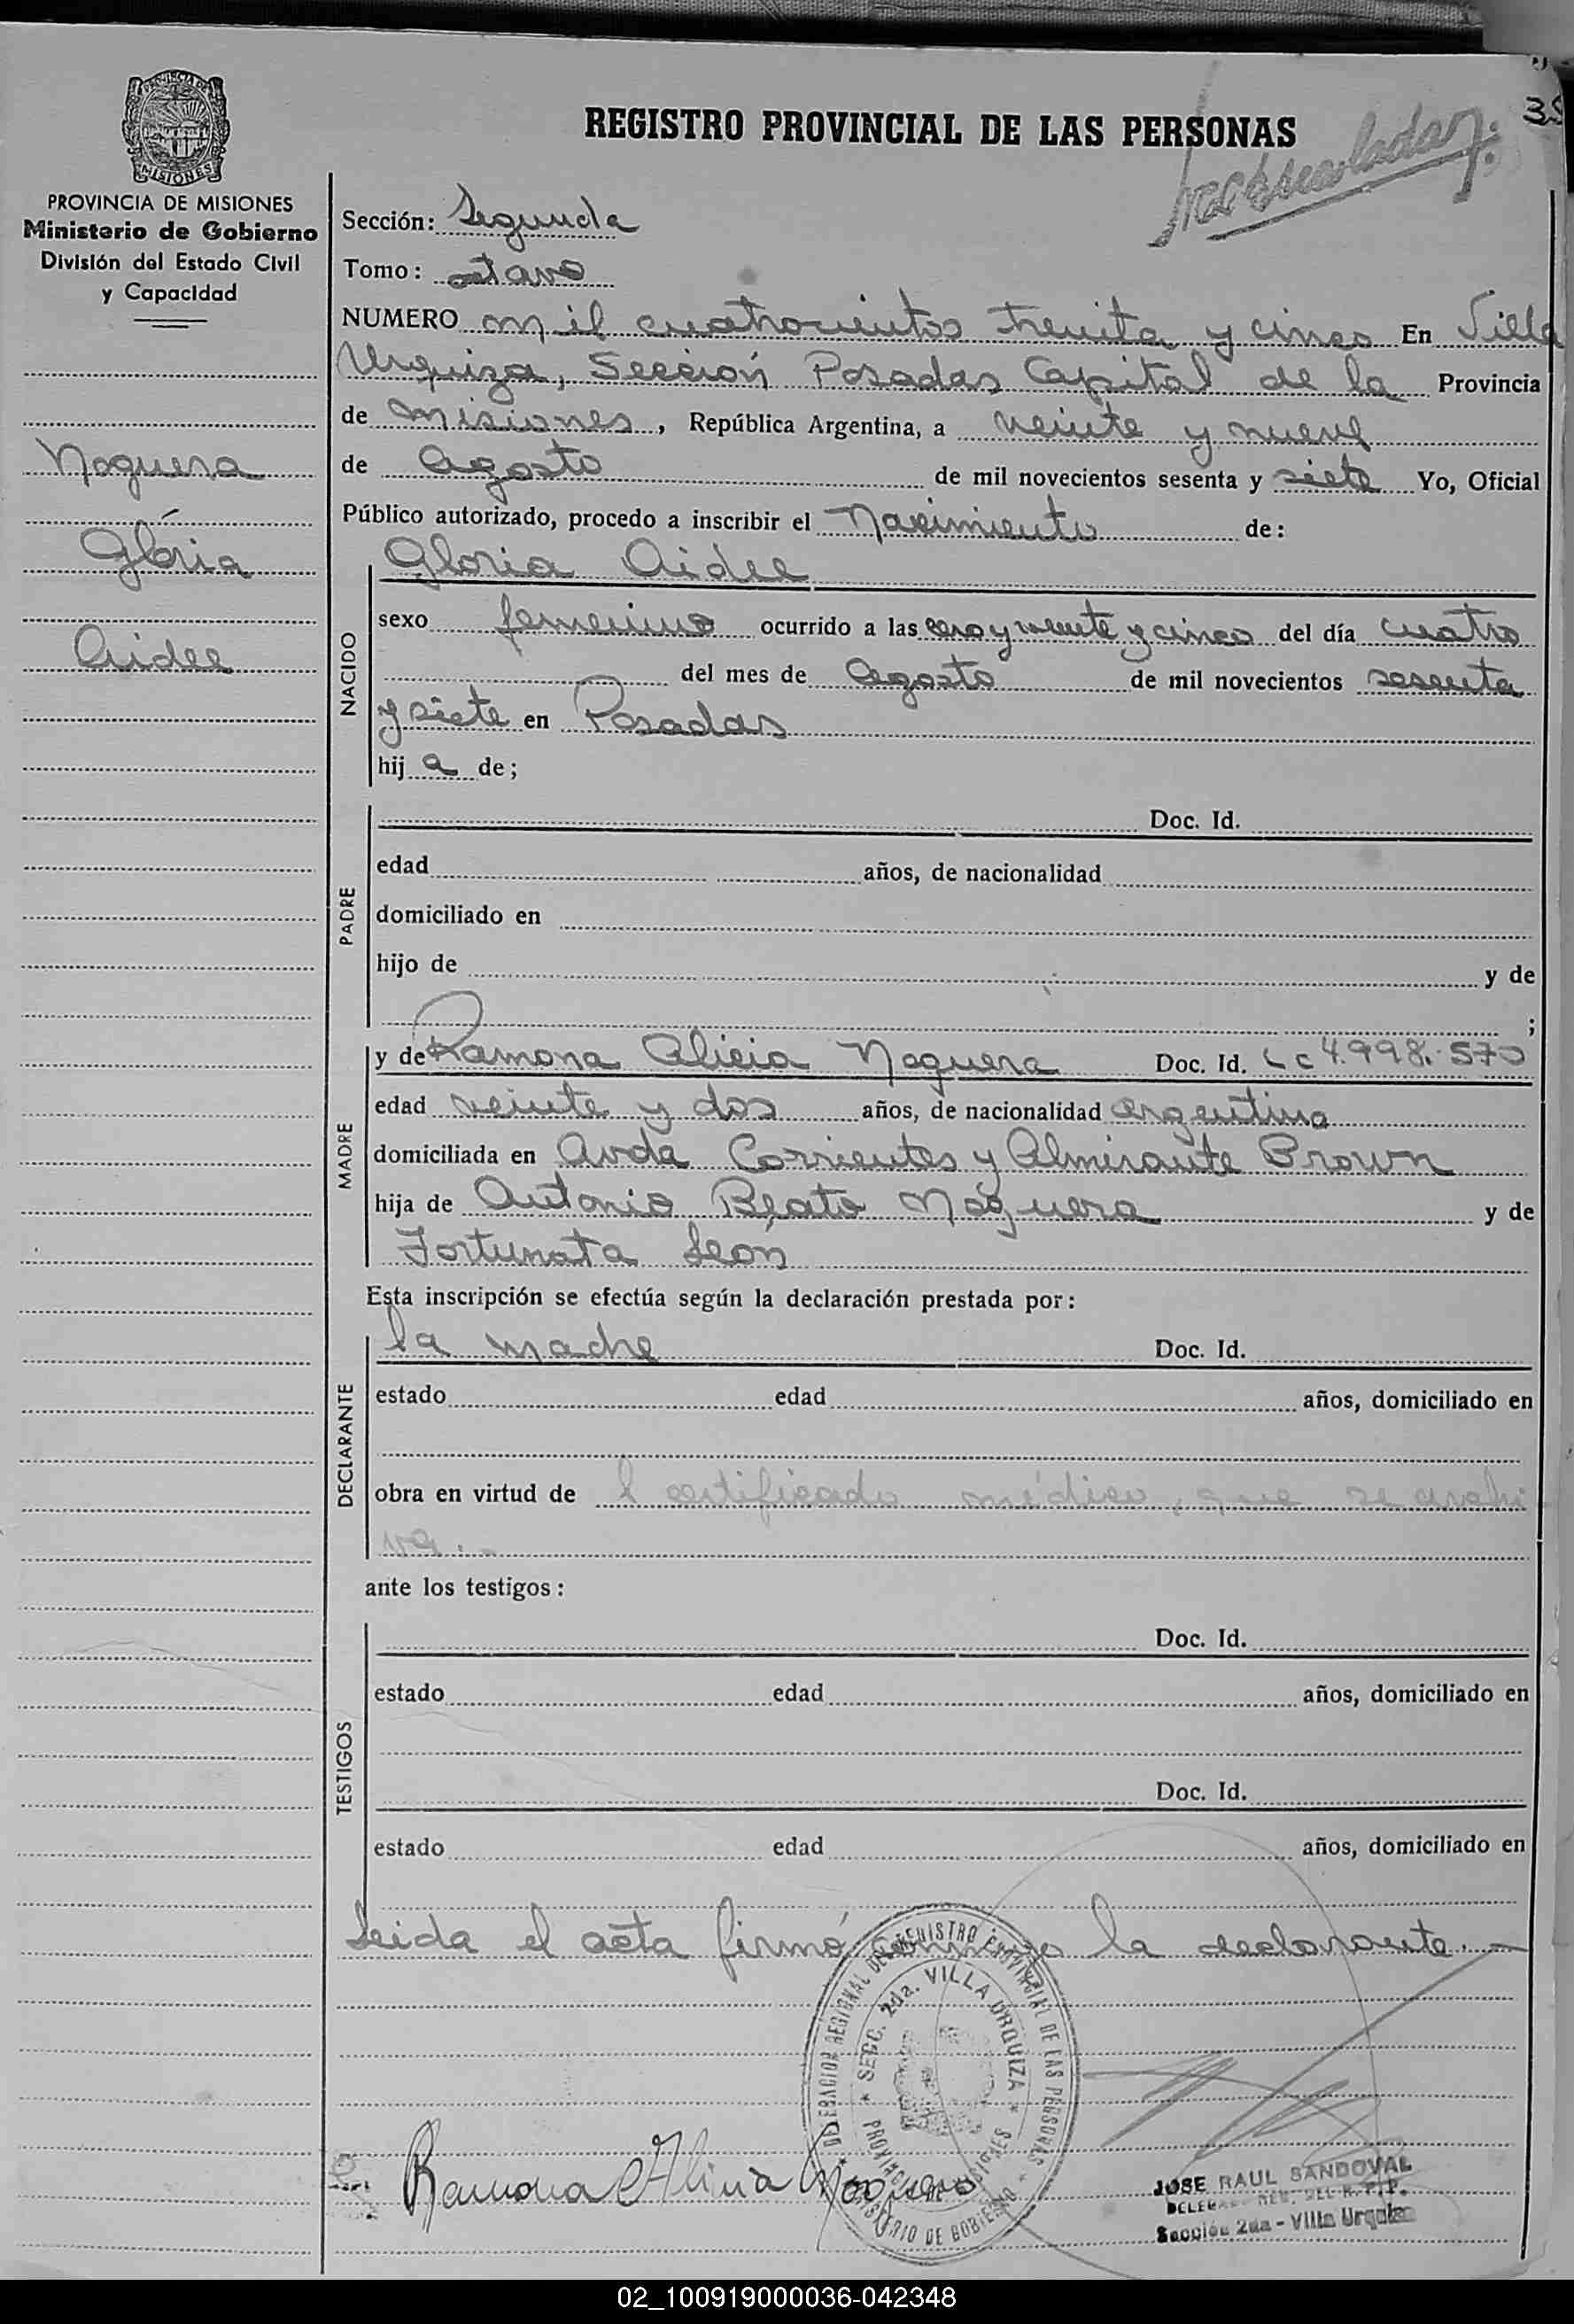 REGISTRO PROVINCIAL DE LAS PERSONAS
35
PROVINCIA DE MISIONES
Ministerio de Gobierno
División del Estado Civil
y Capacidad
Noguera
Gloria
Aidee
Sección: Segunda
Tomo: octavo
NUMERO mil cuatrocientos treinta y cinco En Villa
Urquiza, Sección Posadas Capital de la Provincia
de Misiones, República Argentina, a veinte y nueve
de Agosto de mil novecientos sesenta y siete Yo, Oficial
Público autorizado, procedo a inscribir el Nacimiento de:
NACIDO
Gloria Aidee
sexo femenino ocurrido a las cero y veinte y cinco del día cuatro
del mes de Agosto de mil novecientos sesenta
y siete en Posadas
hij a de;
PADRE
Doc. Id.
edad años, de nacionalidad
domiciliado en
hijo de y de
;
MADRE
y de Ramona Alicia Noguera Doc. Id. LC 4.998.570
edad veinte y dos años, de nacionalidad argentina
domiciliada en Avda Corrientes y Almirante Brown
hija de Antonio Beato Noguera y de
Fortunata León
Esta inscripción se efectúa según la declaración prestada por:
DECLARANTE
la madre Doc. Id.
estado edad años, domiciliado en
obra en virtud de l certificado médico, que se archi
va.-
ante los testigos:
TESTIGOS
Doc. Id.
estado edad años, domiciliado en
Doc. Id.
estado edad años, domiciliado en
Leida el acta firmó conmigo la declarante.-
DELEGACION REGIONAL DEL REGISTRO PROVINCIAL DE LAS PERSONAS
SECC. 2da. VILLA URQUIZA
PROVINCIA DE MISIONES
MINISTERIO DE GOBIERNO
Ramona Noguera
JOSE RAUL SANDOVAL
DELEGADO REG. DEL R.P.P.
Sección 2da - Villa Urquiza
02_100919000036-042348